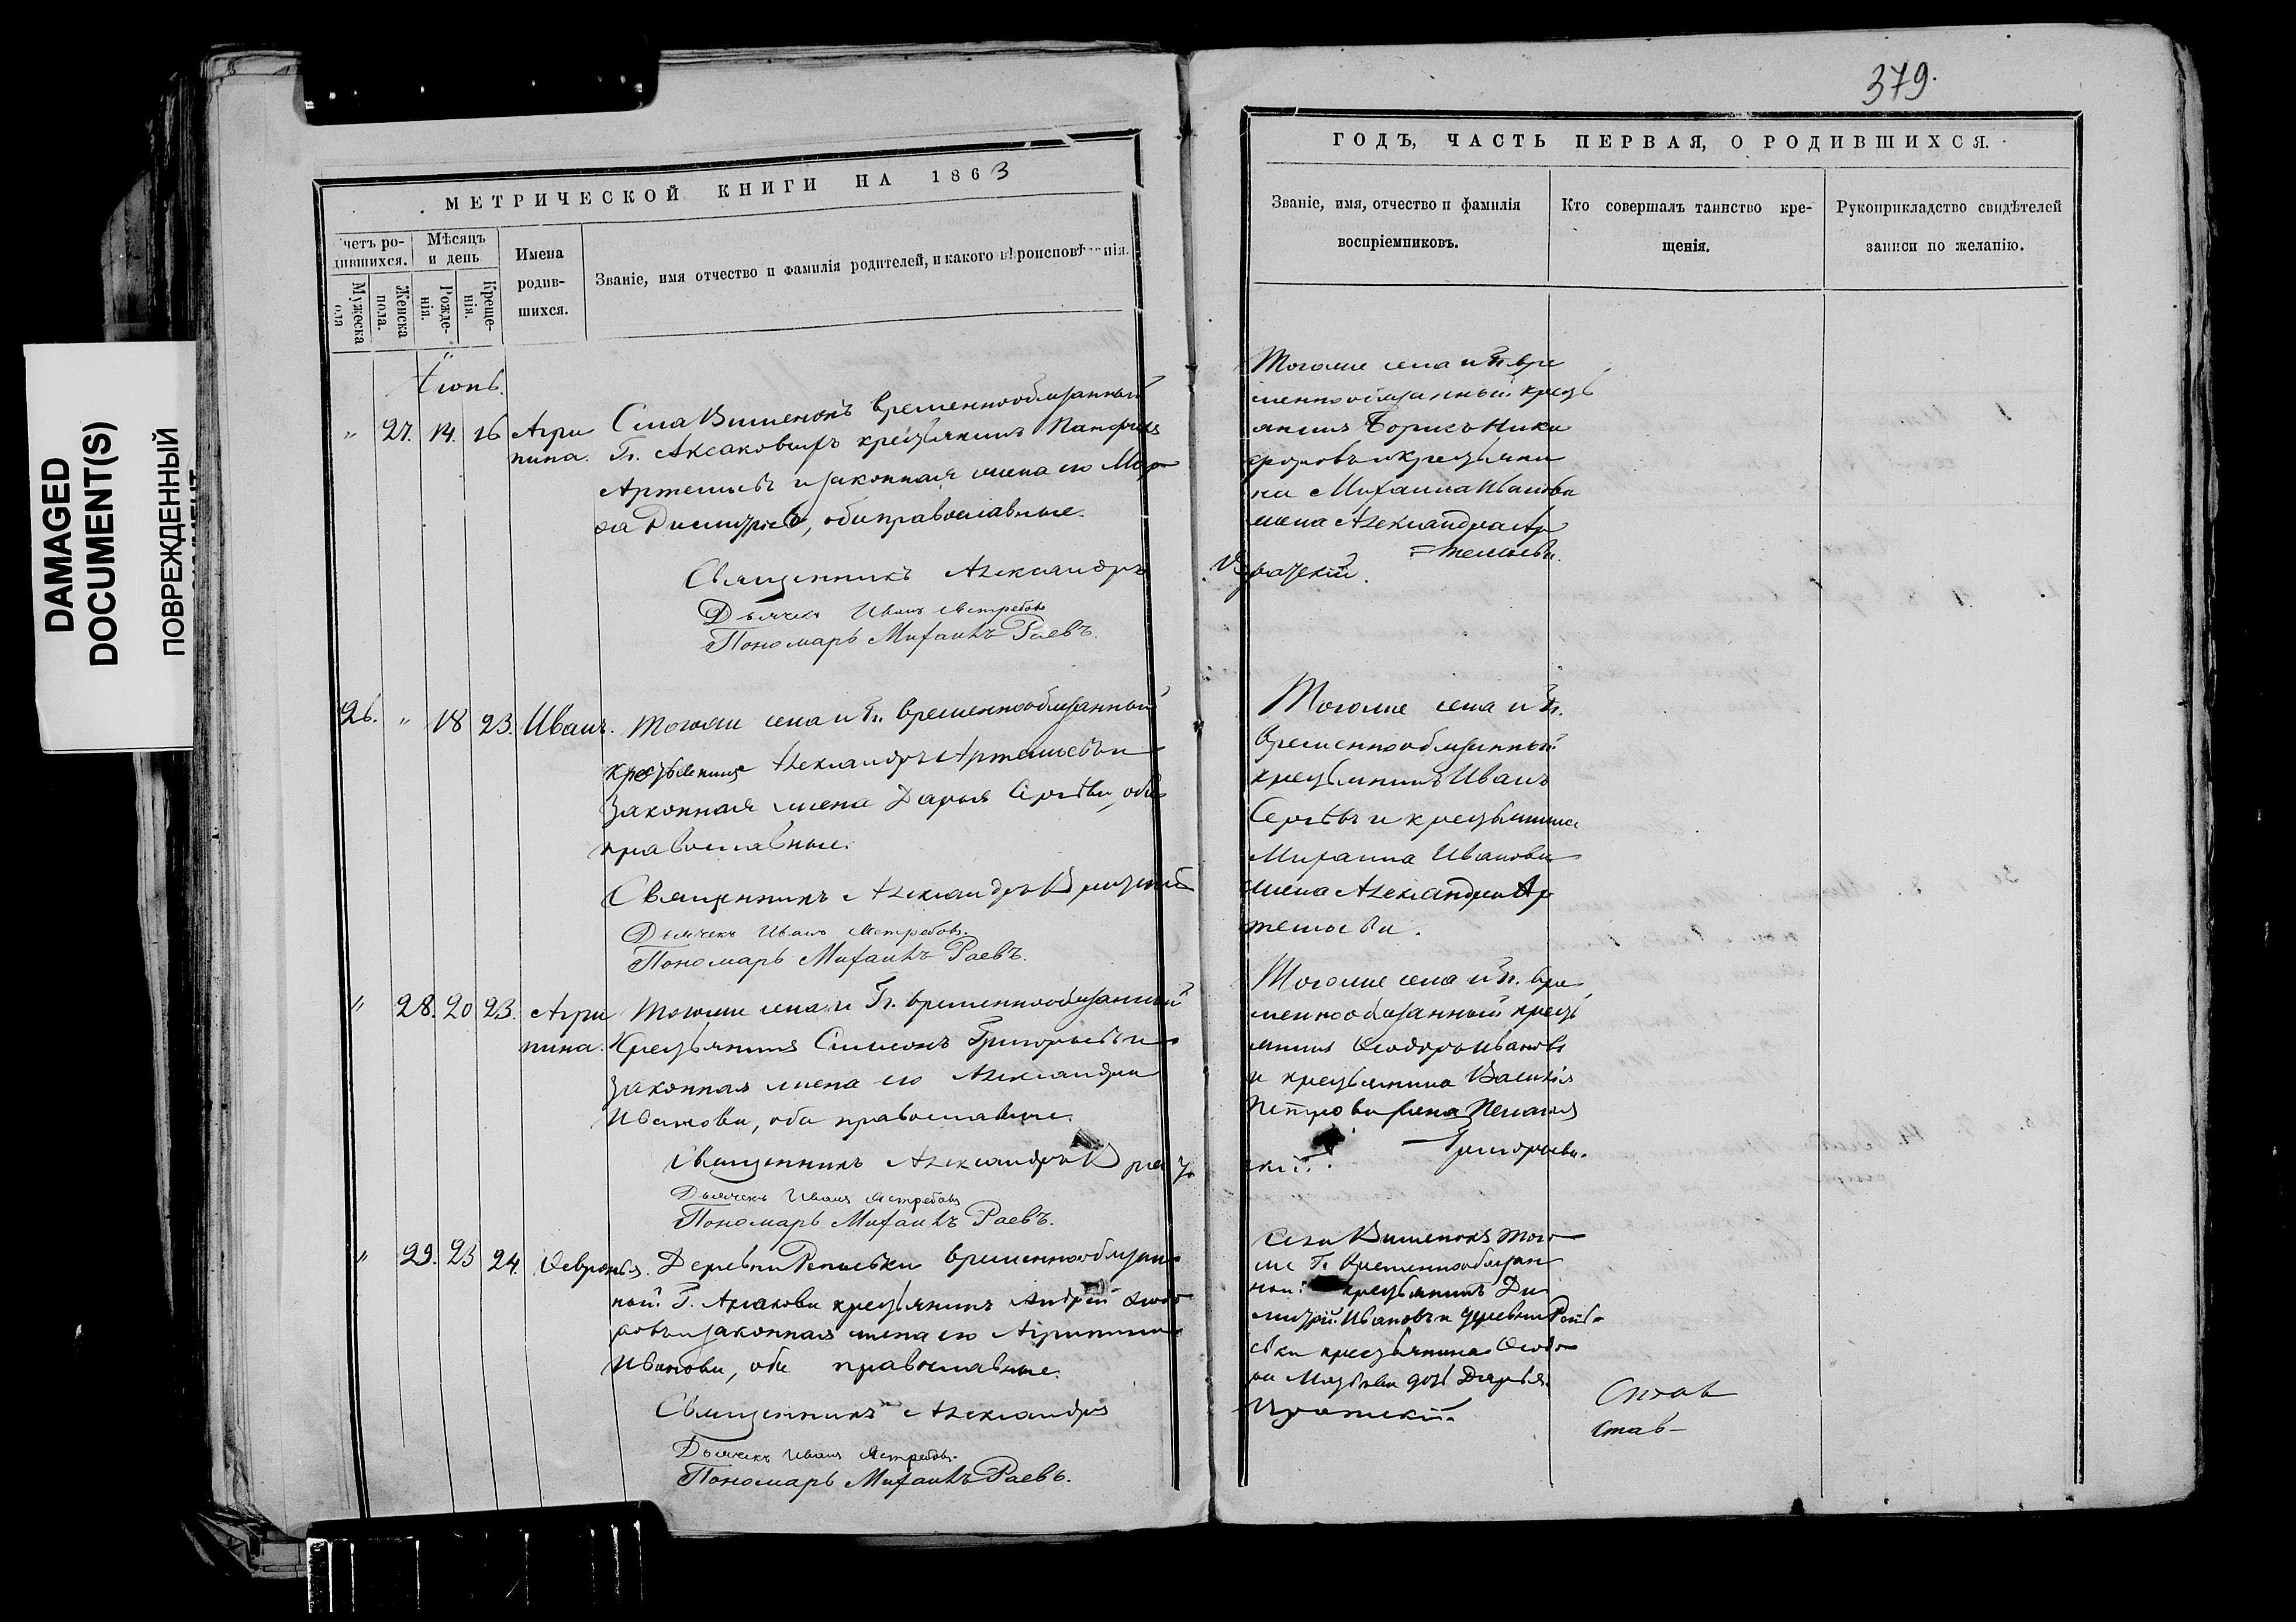 DAMAGED
DOCUMENT(S)
ПОВРЕЖДЕННЫЙ
МЕТРИЧЕСКОЙ КНИГИ НА 1863
четъ ро-
дившихся.
Мѣсяцъ
и день
Имена
родив-
шихся.
Званіе, имя отчество и фамилія родителей, и какого
Мужеска
Женска
пола.
Рожде-
нія.
Креще-
нія.
Іюнь.
" 27. 14. 16 Агри
пина.
Села Вишенокъ временнообязанный
Гг. Аксаковыхъ крестьянинъ
Артемьевъ и законная жена его
обаправославные.
Священникъ Александръ
Дьячекъ Иванъ Ястребовъ
Пономарь Михаилъ Раевъ.
26. " 18 23. Иванъ. Тогоже села и Гг. временнообязанный
крестьянинъ Александръ Артемьевъ и
законная жена Дарья обa
православные.
Священникъ Александръ
Дьячекъ Иванъ Ястребовъ.
Пономарь Михаилъ Раевъ.
" 28. 20 23. Агри
пина.
Тогоже села и Гг. временнообязанный
Крестьянинъ Симеонъ Григорьевъ и
законная жена его Александра
Иванова, оба православные.
Священникъ Александръ
Дьячекъ Иванъ Ястребовъ
Пономарь Михаилъ Раевъ.
" 29. 23 24. Ѳевронья. Деревни Репьевки временнообязан
ный Г. крестьянинъ Андрей Ѳеодо
ровъ и законная жена его Агрипина
Иванова, оба православные.
Священникъ Александръ
Дьячекъ Иванъ Ястребовъ.
Пономарь Михаилъ Раевъ.
379.
ГОДЪ, ЧАСТЬ ПЕРВАЯ, О РОДИВШИХСЯ.
Званіе, имя, отчество и фамилія
воспріемниковъ.
Кто совершалъ таинство кре-
щенія.
Рукоприкладство свидѣтелей
записи по желанію.
Тогоже села и Гг. вре
меннообязанный кресть
янинъ Борисъ Ники
форовъ и крестьяни
на Михаила Иванова
жена Александра Ар
=темьева.
Тогоже села и Гг.
временнообязанный
крестьянинъ Иванъ
Сергѣевъ и крестьянина
Михаила Иванова
жена Александра Ар
темьева.
Тогоже села и Гг. вре
меннообязанный кресть
янинъ Ѳеодоръ Ивановъ
и крестьянина Василія
Петрова жена Пелагея
Григорьева.
Села Вишенокъ того
же Г. временнообязан
ный крестьянинъ Ди
митрій Ивановъ и деревни Репь-
евки крестьянина Ѳеодо
ра дочь Дарья.